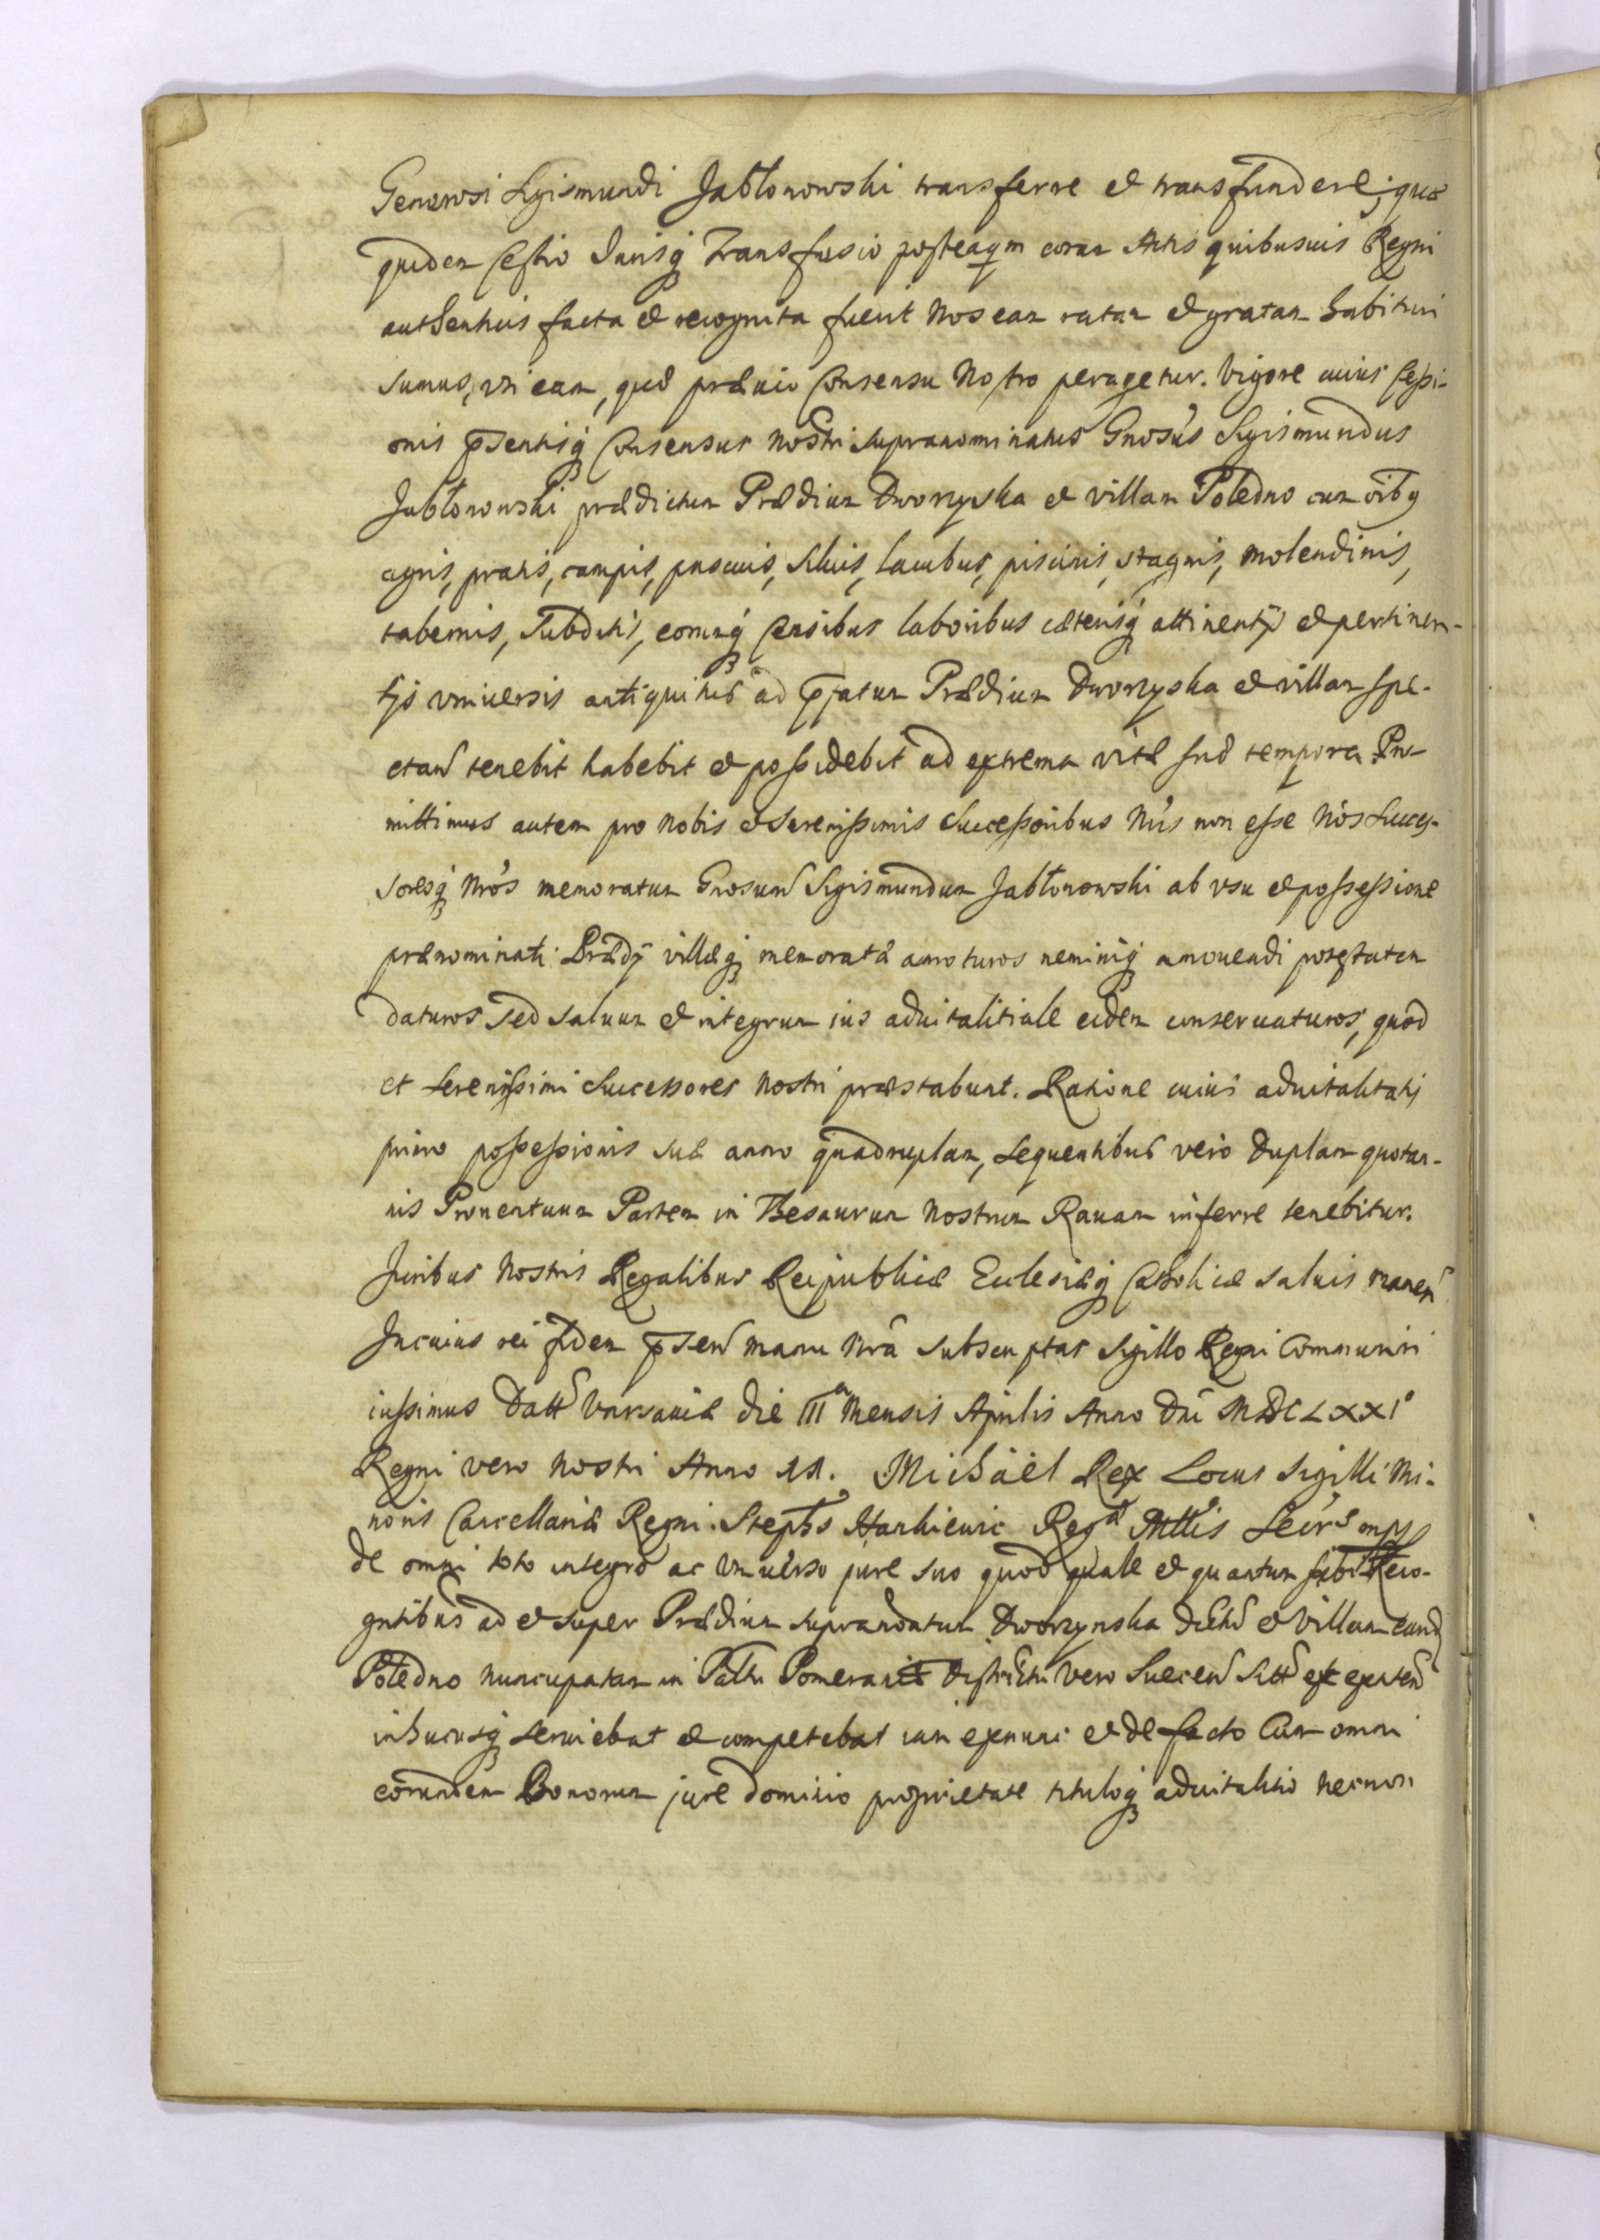 Generosi Sigismundi Jabłonowski transferre et transfundere, quæ
quidem Cessio Jurisq Transfusio posteaqm coram Actis quibusuis Regni
authenticis facta et recognita fuerit Nos eam ratam et gratam habituri
sumus, vti eam, quæ præuio Consensu Nostro peragetur. Vigore cuius Cessi-
onis pñsentisq Consensus Nostri supranominatus Gnosus Sigismundus
Jabłonowski prædictum Prædium Dworzyska et villam Poledno cum oibq
agris, pratis, campis, pascuis, siluis, lacubus, piscinis, stagnis, molendinis,
tabernis, subditis, eorumq Censibus laboribus cæterisq attinentijs et pertinen-
tijs vniuersis antiquitus ad pfatum Prædium Dworzyska et villam spe-
ctan tenebit habebit et possidebit ad extrema vitæ suæ tempora. Pro-
mittimus autem pro Nobis et Serenissimis Successoribus Nris non esse Nos Succes-
soresq Nros memoratum Gnosum Sigismundum Jabłonowski ab vsu et possessione
prænominati Prædij villæq memoratæ amoturos neminiq amouendi potestatem
daturos sed saluum et integrum ius aduitalitiale eidem conseruaturos, quod
et Serenissimi Successores Nostri præstabunt. Ratione cuius aduitalitatis
primo possessionis suæ anno quadruplam, sequentibus vero duplam quotan-
nis Prouentuum Partem in Thesaurum Nostrum Rauam inferre tenebitur.
Juribus Nostris Regalibus Reipublicæ Eclesiæq Catholicæ saluis manen
In cuius rei fidem pñsen manu Nra subscriptas Sigillo Regni Communiri
iussimus Datt Varsauiæ die III Mensis Aprilis Anno Dni MDCLXXI
Regni vero Nostri Anno II. Michäel Rex Locus Sigilli Mi-
noris Cancellariæ Regni. Stephs Hankiewic Reg Mttis Secrs mps
de omni toto integro ac vniuerso jure suo quod quale et quantum sibi Reco-
gntibus ad et super Prædium supranõatum Dworzynska dictu et Villam eand
Poledno nuncupatam in Pattu Pomeraniæ districtu vero Suecen sitt et existen
inhucusq seruiebat et competebat iam exnunc et de facto Cum omni
eorundem Bonorum jure dominio proprietate tituloq aduitalitio necnon